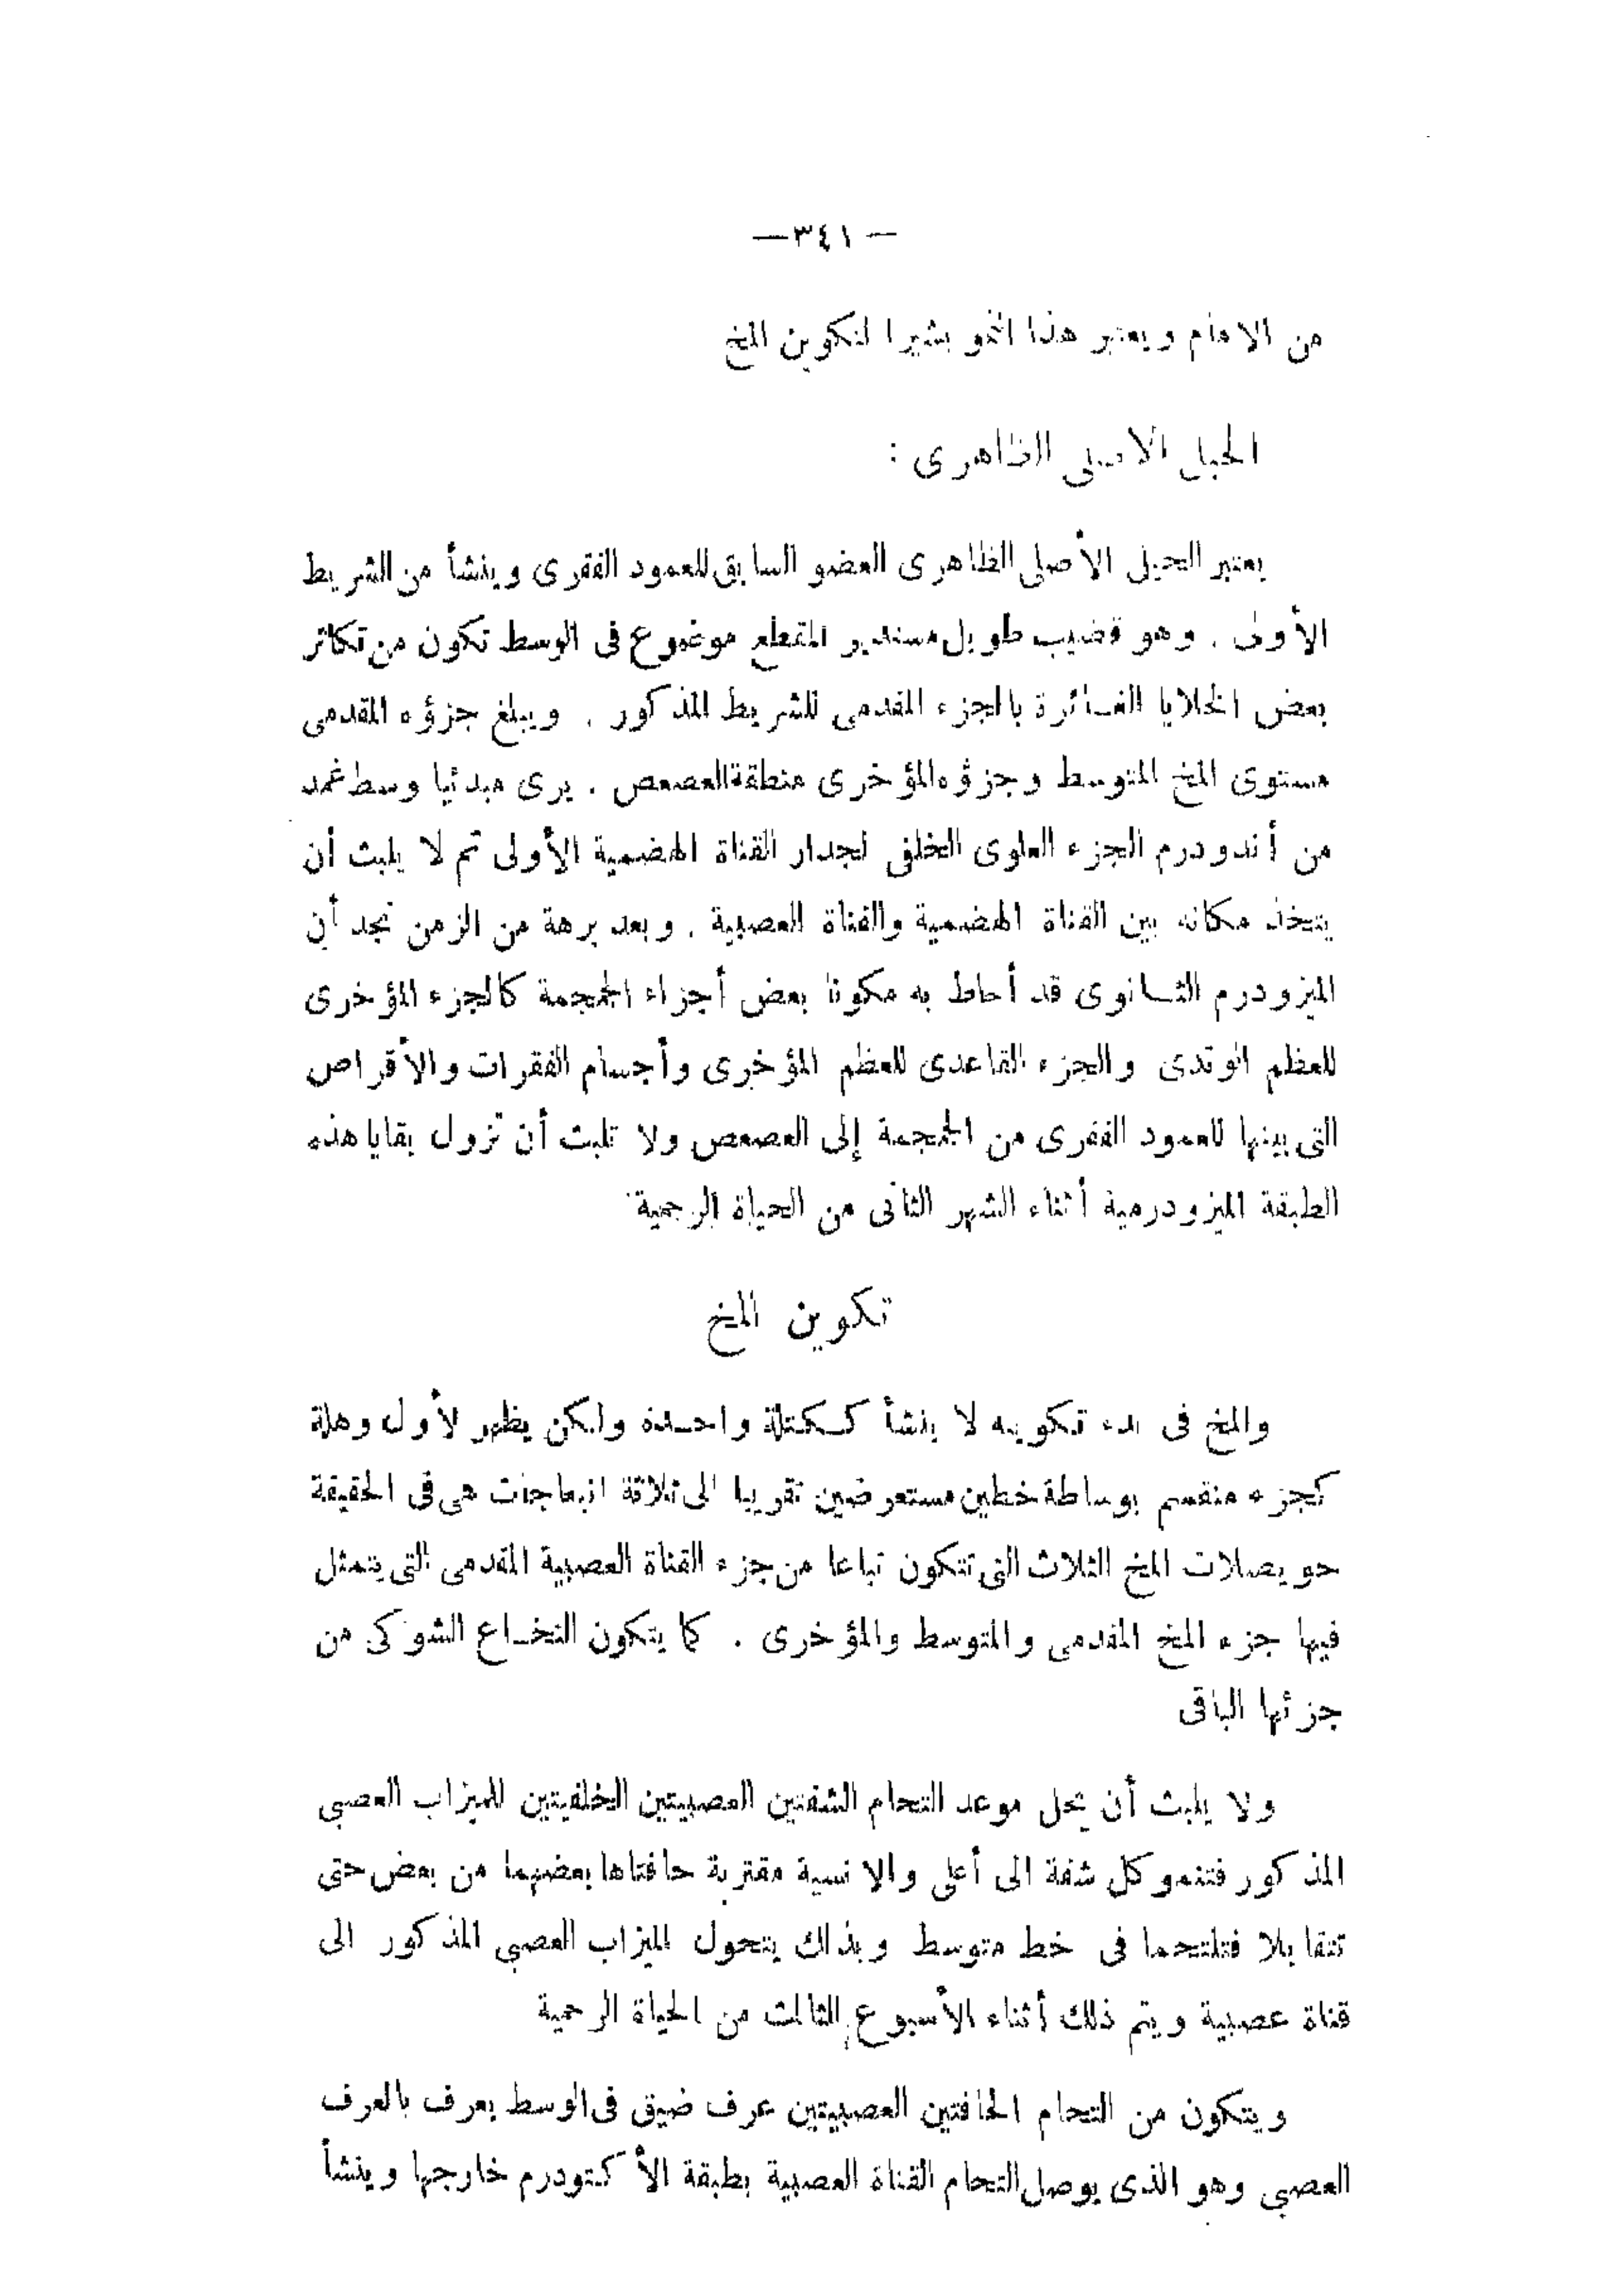 — ٣٤١ —
من الامام ويعتبر هذا النمو بشيرا لتكوين المخ
الحبل الاصلى الظاهرى :
يعتبر الحبل الأصلى الظاهرى العضو السابق للعمود الفقرى وينشأ من الشريط
الأولى . وهو قضيب طويل مستدير المقطع موضوع فى الوسط تكون من تكاثر
بعض الخلايا الغائرة بالجزء المقدمى للشريط المذكور . ويبلغ جزؤه المقدمى
مستوى المخ المتوسط وجزؤه المؤخرى منطقة العصعص . يرى مبدئيا وسط غمد
من أندودرم الجزء العلوى الخلفى لجدار القناة الهضمية الأولى ثم لا يلبث أن
يتخذ مكانه بين القناة الهضمية والقناة العصبية . وبعد برهة من الزمن نجد أن
الميزودرم الثانوى قد أحاط به مكونا بعض أجزاء الجمجمة كالجزء المؤخرى
للعظم الوتدى والجزء القاعدى للعظم المؤخرى وأجسام الفقرات والأقراص
التى بينها للعمود الفقرى من الجمجمة إلى العصعص ولا تلبث أن تزول بقايا هذه
الطبقة الميزودرمية أثناء الشهر الثانى من الحياة الرحمية
تكوين المخ
والمخ فى بدء تكوينه لا ينشأ ككتلة واحدة ولكن يظهر لأول وهلة
كجزء منقسم بوساطة خطين مستعرضين تقريبا الى ثلاثة انبعاجات هى فى الحقيقة
حويصلات المخ الثلاث التى تتكون تباعا من جزء القناة العصبية المقدمى التى يتمثل
فيها جزء المخ المقدمى والمتوسط والمؤخرى . كما يتكون النخاع الشوكى من
جزئها الباقى
ولا يلبث أن يحل موعد التحام الشفتين العصبيتين الخلفيتين للميزاب العصبى
المذكور فتنمو كل شفة الى أعلى والانسية مقتربة حافتاها بعضهما من بعض حتى
تتقابلا فتلتحما فى خط متوسط وبذلك يتحول الميزاب العصبى المذكور الى
قناة عصبية ويتم ذلك أثناء الأسبوع الثالث من الحياة الرحمية
ويتكون من التحام الحافتين العصبيتين عرف ضيق فى الوسط يعرف بالعرف
العصبى وهو الذى يوصل التحام القناة العصبية بطبقة الأكتودرم خارجها وينشأ